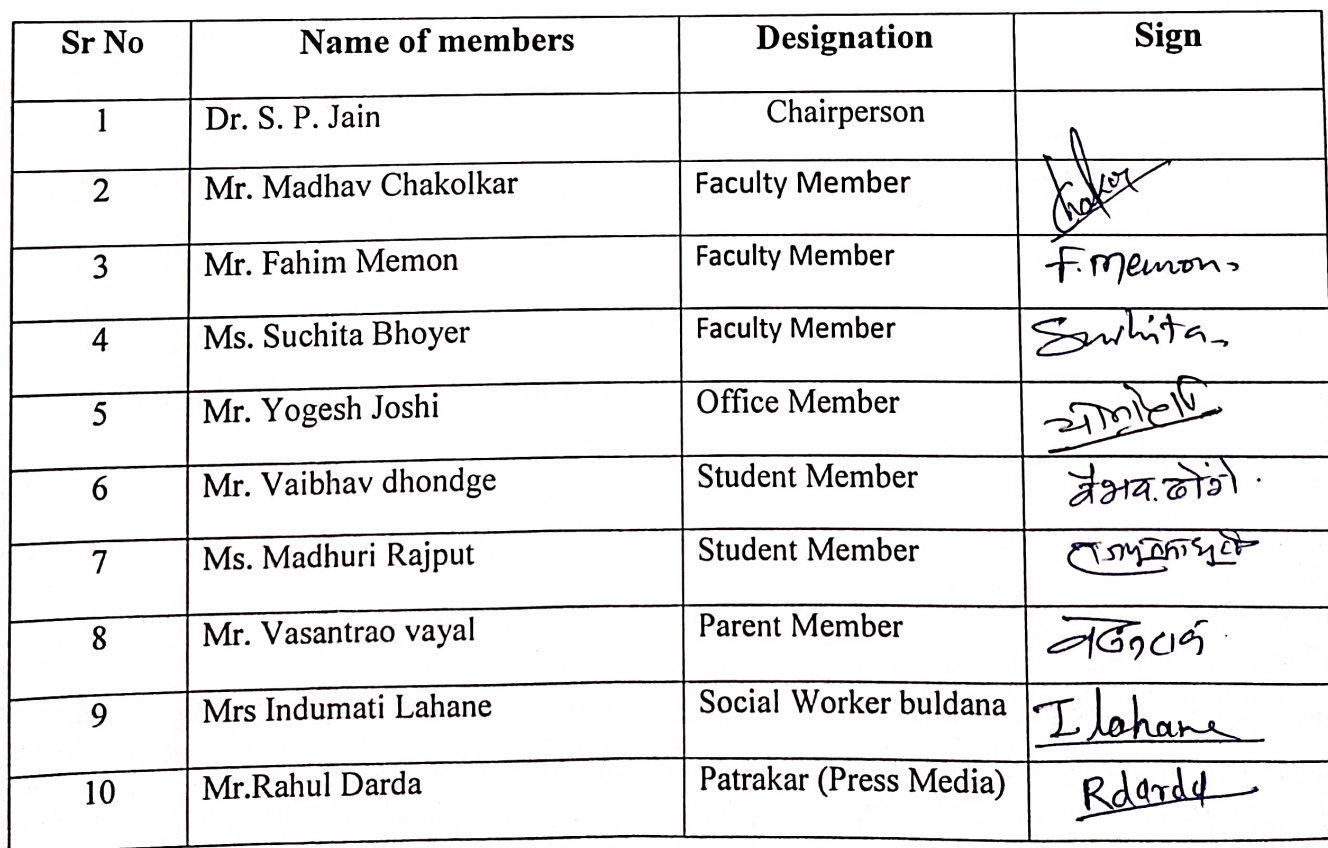 Sr No Name of members Designation Sign
1 Dr. S. P. Jain Chairperson
2 Mr. Madhav Chakolkar Faculty Member
3 Mr. Fahim Memon Faculty Member F. Memon
4 Ms. Suchita Bhoyer Faculty Member Suchita
5 Mr. Yogesh Joshi Office Member
6 Mr. Vaibhav dhondge Student Member
7 Ms. Madhuri Rajput Student Member
8 Mr. Vasantrao vayal Parent Member
9 Mrs Indumati Lahane Social Worker buldana I lahane
10 Mr.Rahul Darda Patrakar (Press Media) Rdarda